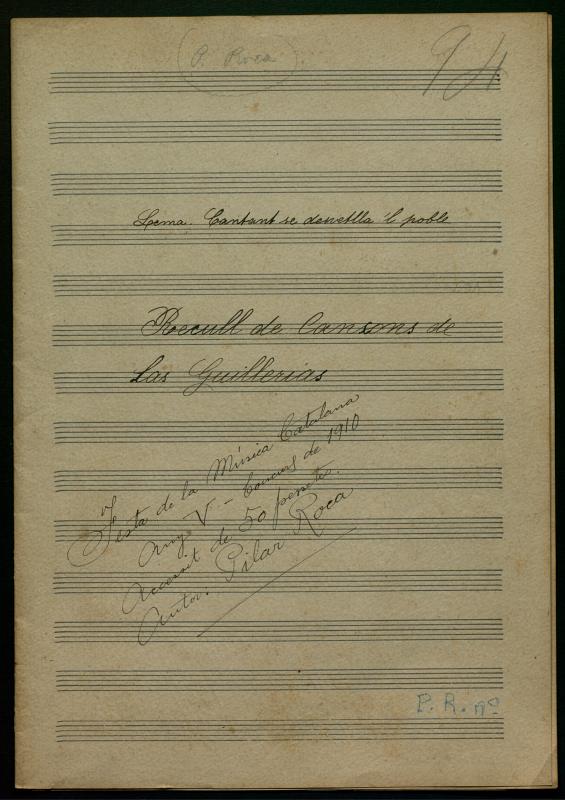 (P. Roca)
94
Lema. Cantant se desvetlla 'l poble
Recull de Cansons de
Las Guillerias
Festa de la Música Catalana
Any V - Concurs de 1910
Accessit de 50 pessetes.
Autor: Pilar Roca
P. R. nº